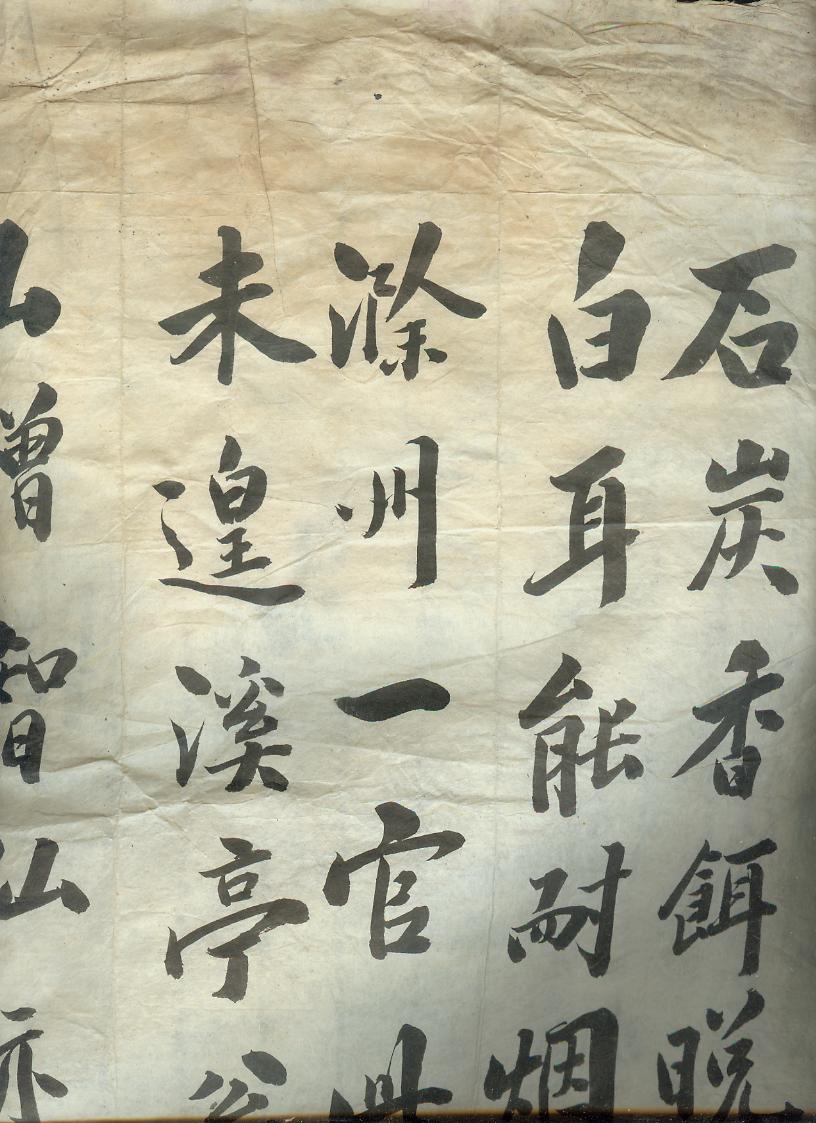 石炭香餌晚
白耳能耐烟
滁州一官
未遑溪亭翁
山僧智仙亦